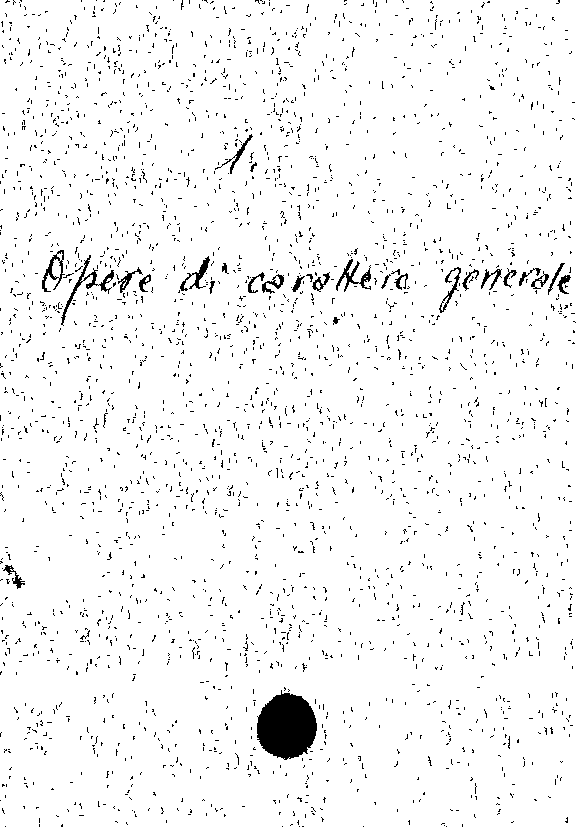 1.
Opere di carattere generale